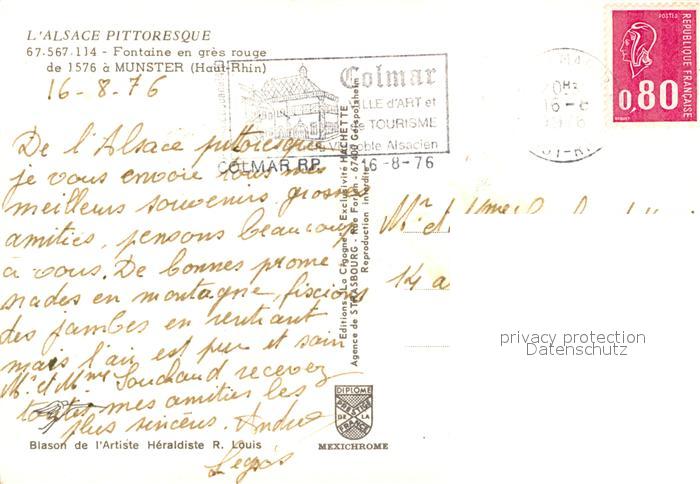 L'ALSACE PITTORESQUE
67.567.114 - Fontaine en grès rouge
de 1576 à MUNSTER (Haut-Rhin)
16-8-76
De l'Alsace pittoresque
je vous envoie tous mes
meilleurs souvenirs grosses
amitiés, pensons beaucoup
à vous. De bonnes prome
nades en montagne,
des jambes en rentrant
mais l'air est pur et sain
Mr et Mme Souchaud recevez
toutes mes amitiés les
plus sincères. Andrée
Blason de l'Artiste Héraldiste R. Louis
Colmar
VILLE d'ART et
de TOURISME
Vignoble Alsacien
COLMAR RP 16-8-76
Editions "La Cigogne" Exclusivité HACHETTE
Agence de STRASBOURG - Rue Forlen - 67400 Geispolsheim
Reproduction interdite
Mr et Mme
14 a
POSTES
REPUBLIQUE FRANÇAISE
0,80
privacy protection
Datenschutz
DIPLOME
PRESTIGE
DE LA
FRANCE
MEXICHROME